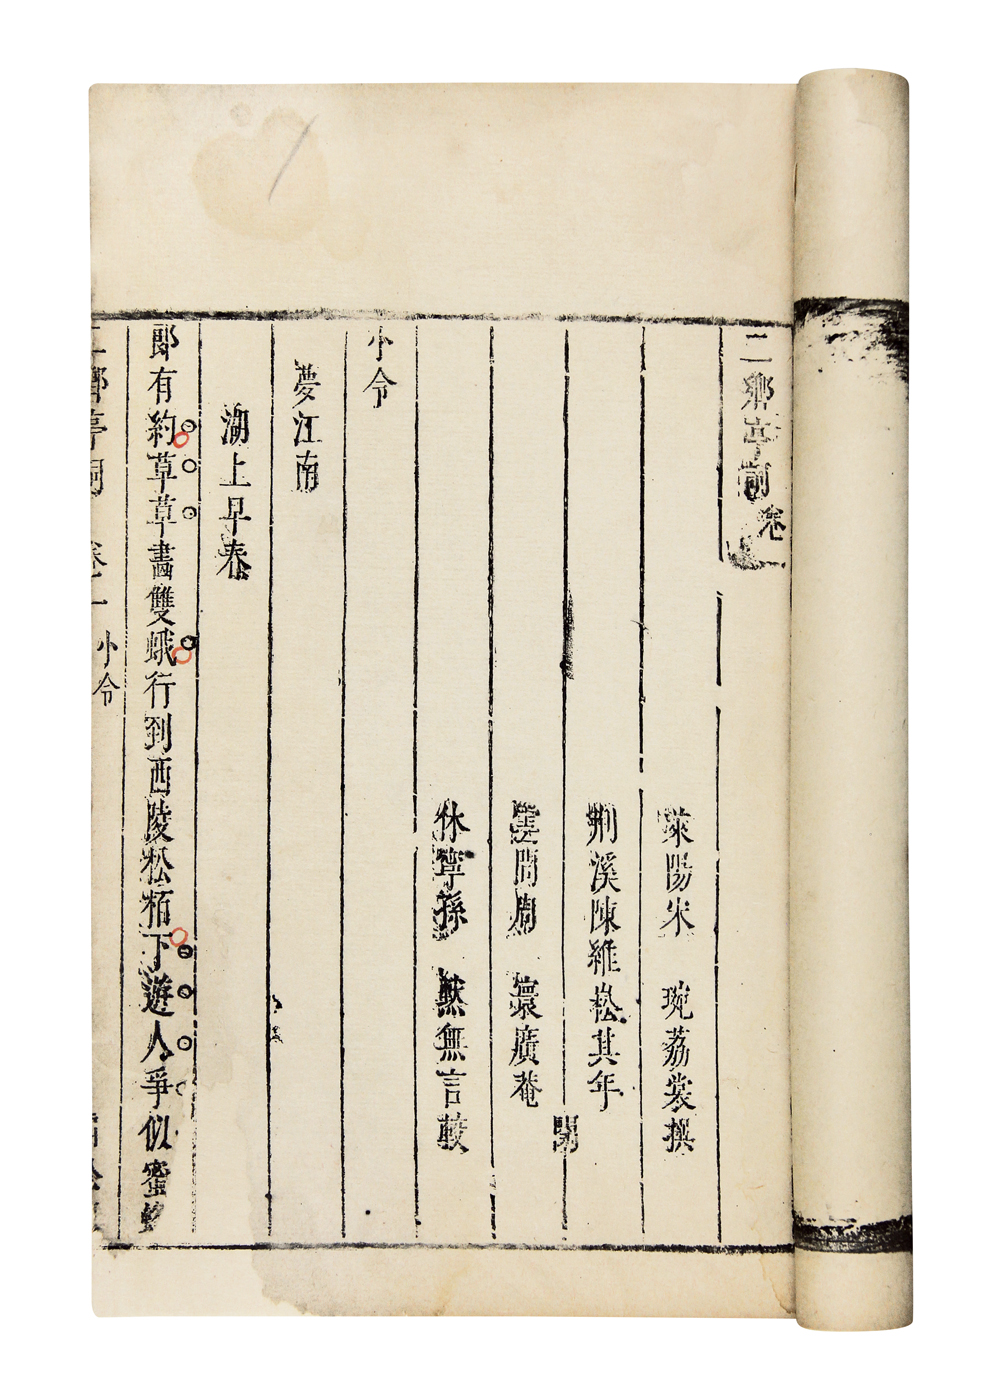 二鄉亭詞卷一
萊陽宋　琬荔裳撰
荆溪陳維崧其年
雲間周　𡩋廣菴閱
休寧孫　默無言較
小令
夢江南
湖上早春
郎有約草草畫雙蛾行到西陵松栢下遊人爭似蜜蜂
二鄉亭詞　卷一　小令